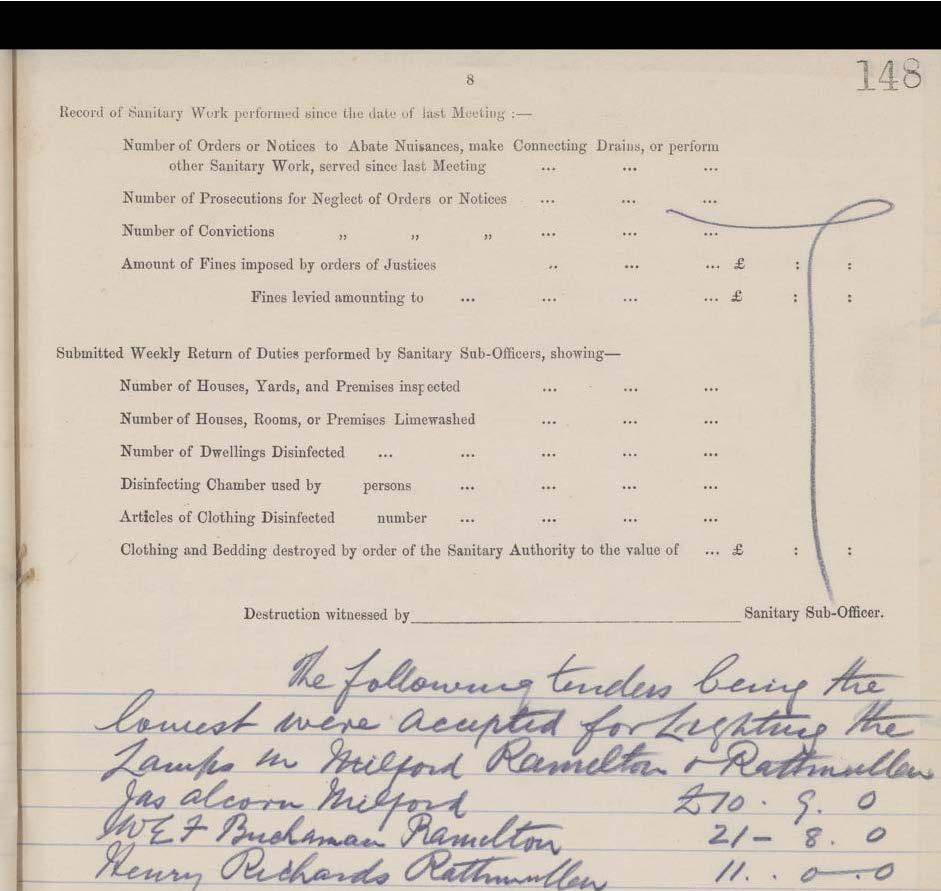 8
148
Record of Sanitary Work performed since the date of last Meeting :—
Number of Orders or Notices to Abate Nuisances, make Connecting Drains, or perform
other Sanitary Work, served since last Meeting ... ... ...
Number of Prosecutions for Neglect of Orders or Notices ... ... ...
Number of Convictions „ „ „ ... ... ...
Amount of Fines imposed by orders of Justices .. ... ... £ : :
Fines levied amounting to ... ... ... ... £ : :
Submitted Weekly Return of Duties performed by Sanitary Sub-Officers, showing—
Number of Houses, Yards, and Premises inspected ... ... ...
Number of Houses, Rooms, or Premises Limewashed ... ... ...
Number of Dwellings Disinfected ... ... ... ... ...
Disinfecting Chamber used by persons ... ... ... ...
Articles of Clothing Disinfected number ... ... ... ...
Clothing and Bedding destroyed by order of the Sanitary Authority to the value of ... £ : :
Destruction witnessed by Sanitary Sub-Officer.
The following tenders being the
lowest were accepted for Lighting the
Lamps in Milford Ramelton & Rathmullen
Jas Alcorn Milford £10 . 9 . 0
W E F Buchanan Ramelton 21 - 8 . 0
Henry Richards Rathmullen 11 . . 0 - . 0